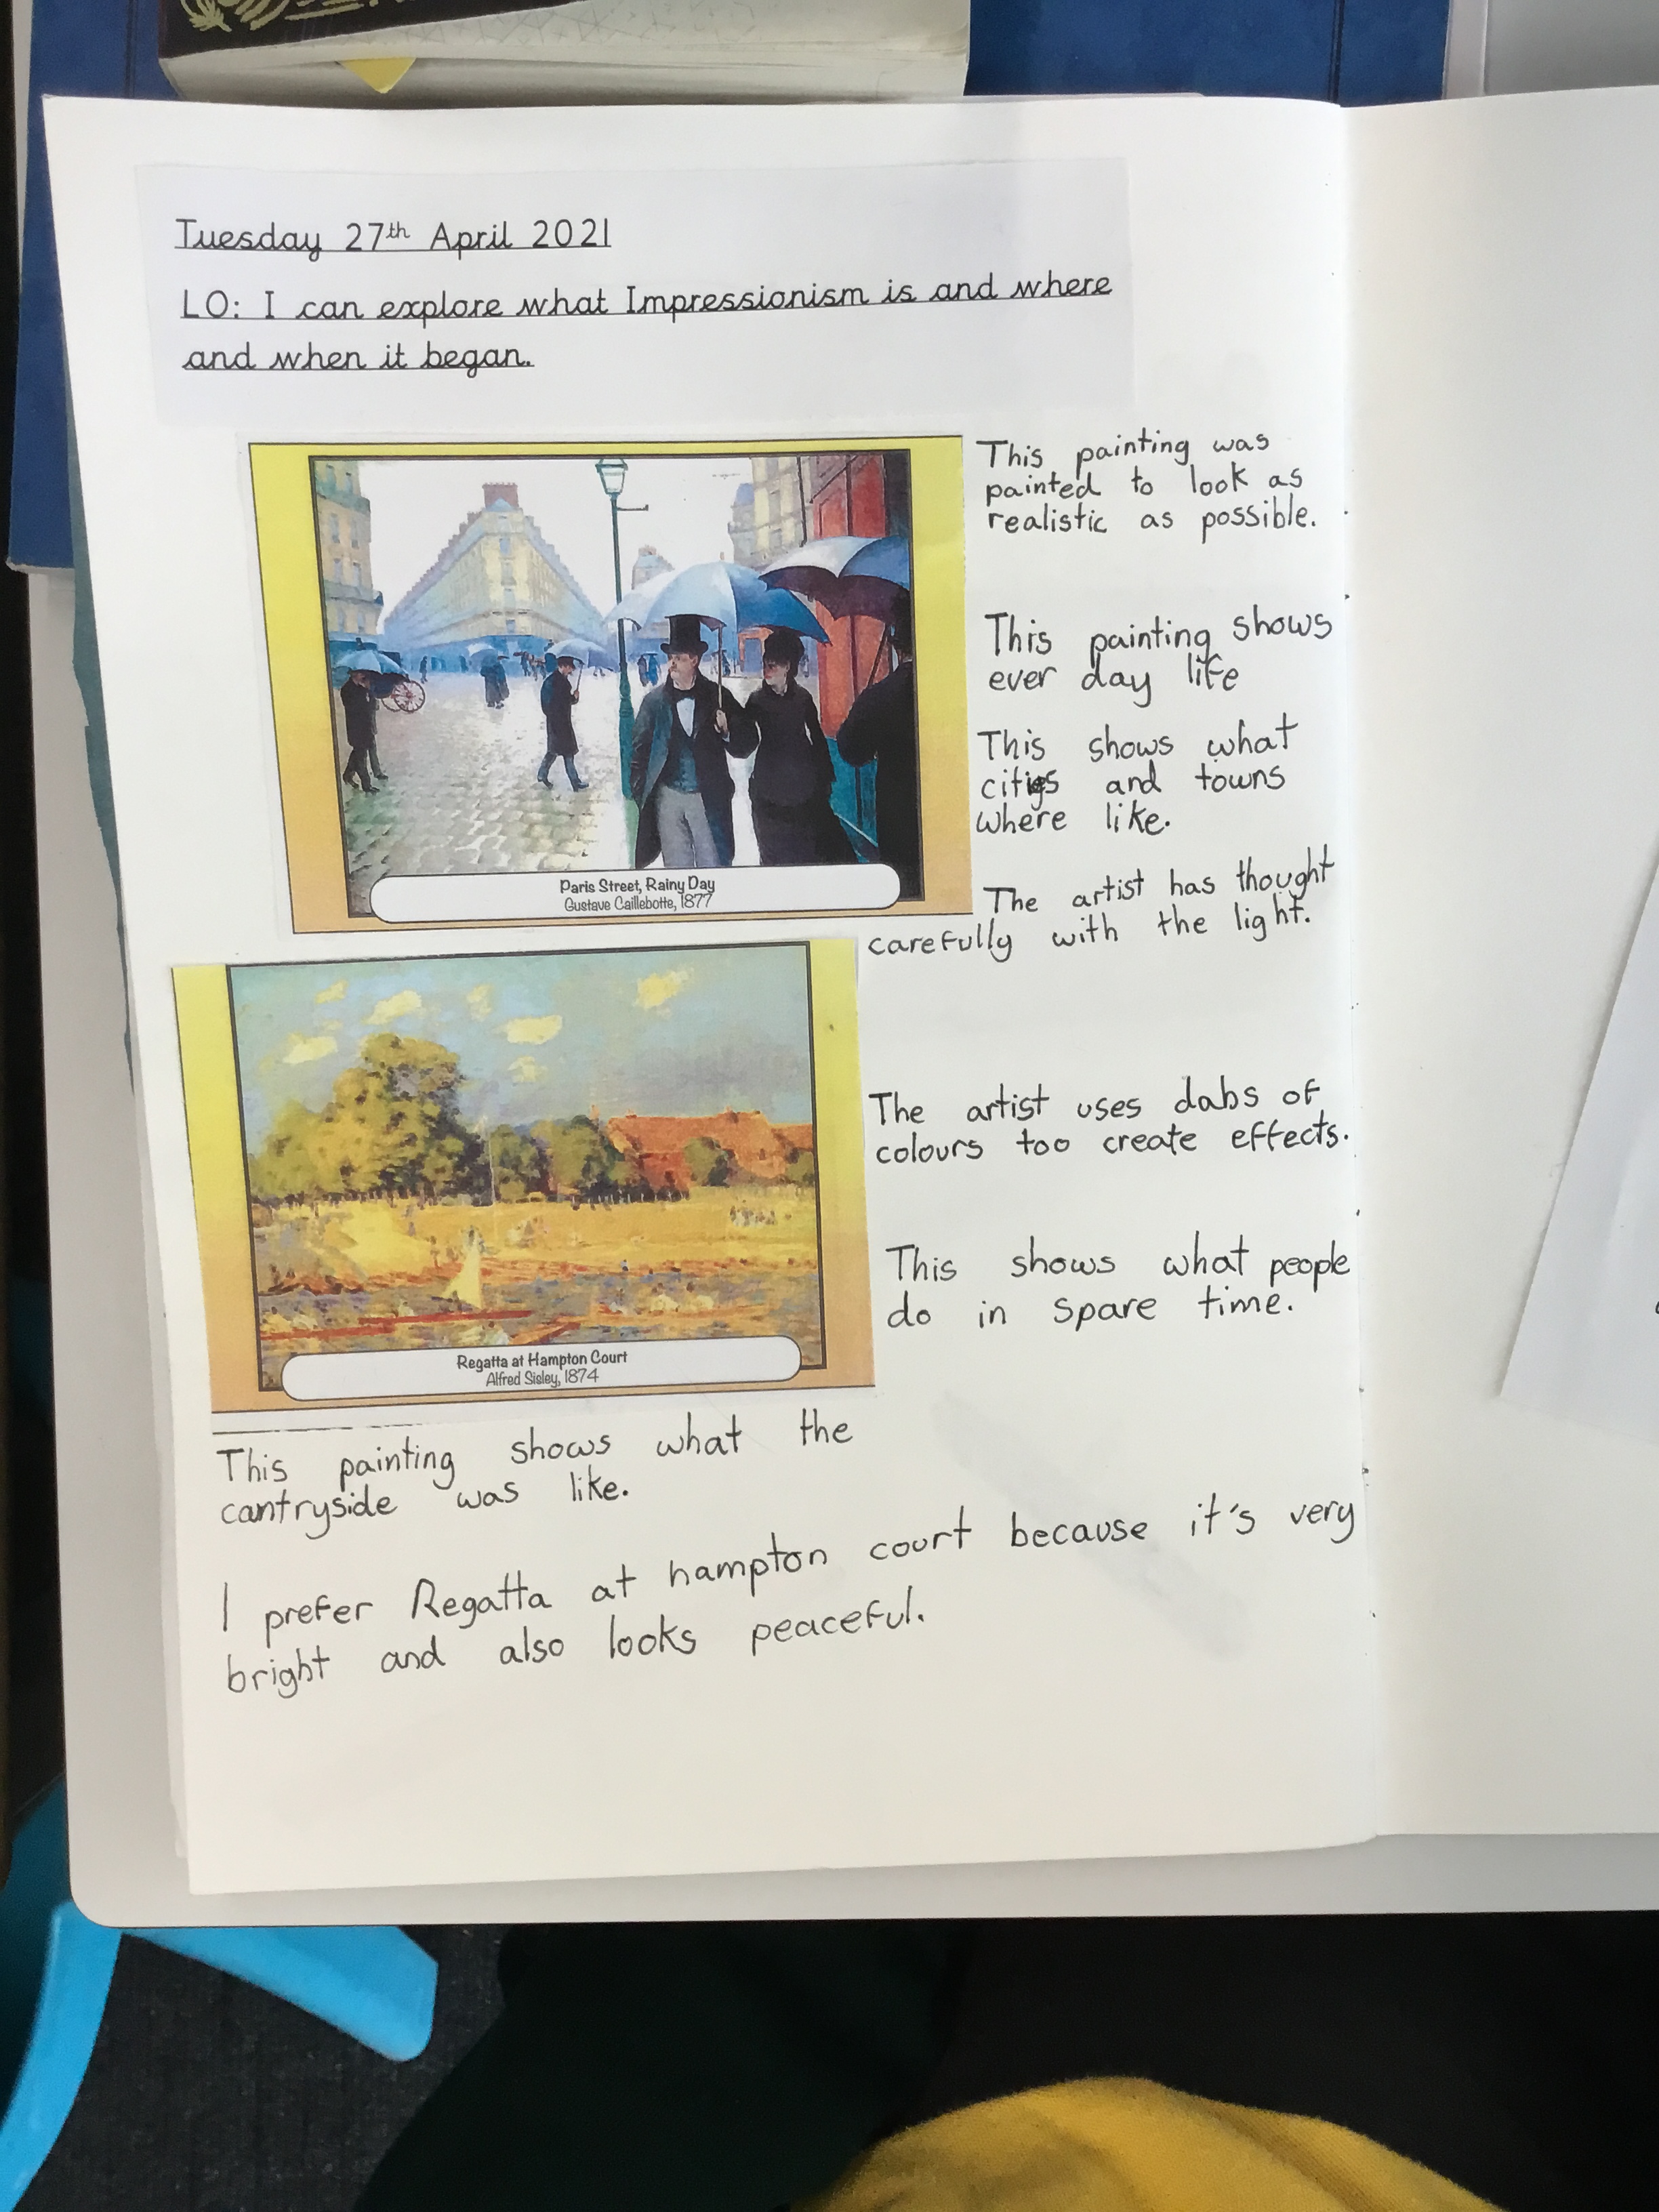 Tuesday 27th April 2021
LO: I can explore what Impressionism is and where
and when it began.
This painting was
painted to look as
realistic as possible.
This painting shows
ever day life
This shows what
cities and towns
where like.
The artist has thought
carefully with the light.
Paris Street, Rainy Day
Gustave Caillebotte, 1877
The artist uses dabs of
colours too create effects.
This shows what people
do in spare time.
Regatta at Hampton Court
Alfred Sisley, 1874
This painting shows what the
cantryside was like.
I prefer Regatta at hampton court because it's very
bright and also looks peaceful.